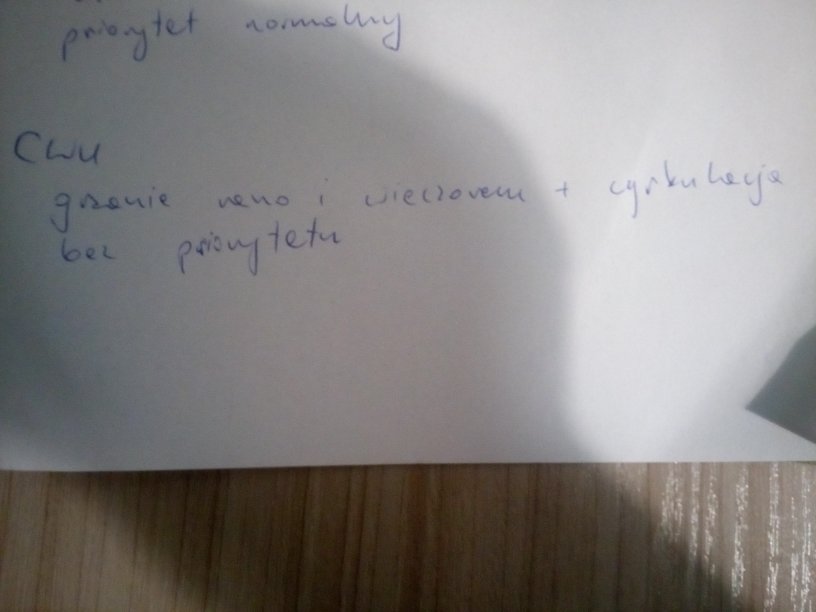 priorytet normalny
CWU
grzanie rano i wieczorem + cyrkulacja
bez priorytetu